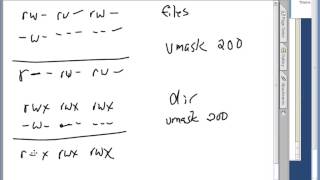 rw- rw- rw- files
-w- --- --- umask 200
r-- rw- rw-
rwx rwx rwx dir
-w- --- --- umask 200
r-x rwx rwx